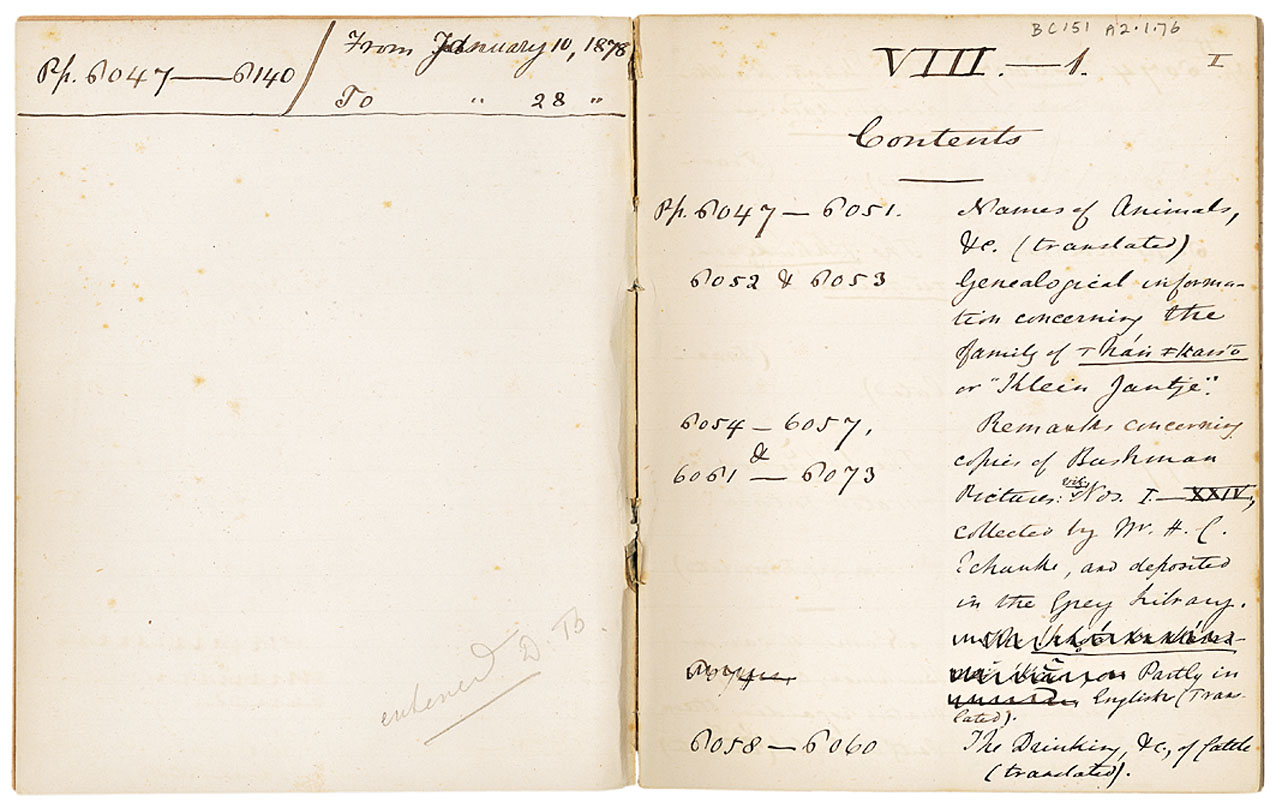 Pp. 6047—6140
From January 10, 1878
To " 28 "
entered D. B.
BC151 A2.1.76
VIII.—1.
I
Contents
Pp. 6047 — 6051. Names of Animals,
&c. (translated)
6052 & 6053 Genealogical informa-
tion concerning the
family of
or "Klein Jantje".
6054 — 6057, Remarks concerning
& copies of Bushman
6061 — 6073 Pictures: viz, Nos. I.—XXIV,
collected by Mr. H. C.
Schunke, and deposited
in the Grey Library.
Partly in
English (Trans-
lated).
6058 — 6060 The Drinking, &c., of Cattle
(translated).